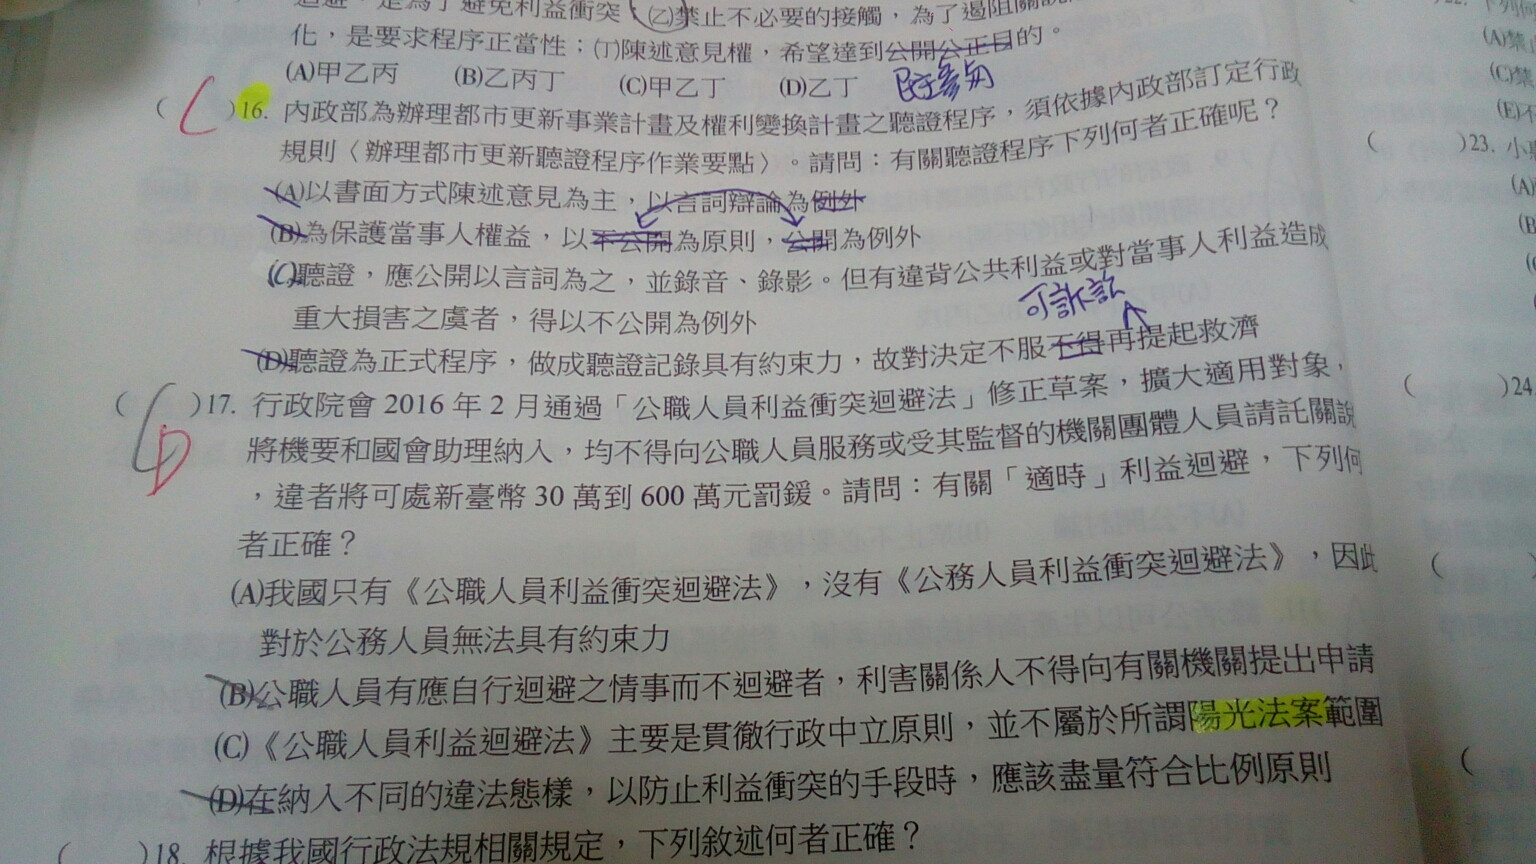 迴避，是為了避免利益衝突；(乙)禁止不必要的接觸，為了遏阻關說
化，是要求程序正當性；(丁)陳述意見權，希望達到公開公正目的。
(A)甲乙丙 (B)乙丙丁 (C)甲乙丁 (D)乙丁 民主參與
( C )16. 內政部為辦理都市更新事業計畫及權利變換計畫之聽證程序，須依據內政部訂定行政
規則〈辦理都市更新聽證程序作業要點〉。請問：有關聽證程序下列何者正確呢？
(A)以書面方式陳述意見為主，以言詞辯論為例外
(B)為保護當事人權益，以不公開為原則，公開為例外
(C)聽證，應公開以言詞為之，並錄音、錄影。但有違背公共利益或對當事人利益造成
可訴訟
重大損害之虞者，得以不公開為例外
(D)聽證為正式程序，做成聽證記錄具有約束力，故對決定不服不得再提起救濟
( D )17. 行政院會 2016 年 2 月通過「公職人員利益衝突迴避法」修正草案，擴大適用對象，
將機要和國會助理納入，均不得向公職人員服務或受其監督的機關團體人員請託關說
，違者將可處新臺幣 30 萬到 600 萬元罰鍰。請問：有關「適時」利益迴避，下列何
者正確？
(A)我國只有《公職人員利益衝突迴避法》，沒有《公務人員利益衝突迴避法》，因此
對於公務人員無法具有約束力
(B)公職人員有應自行迴避之情事而不迴避者，利害關係人不得向有關機關提出申請
(C)《公職人員利益迴避法》主要是貫徹行政中立原則，並不屬於所謂陽光法案範圍
(D)在納入不同的違法態樣，以防止利益衝突的手段時，應該盡量符合比例原則
( )18. 根據我國行政法規相關規定，下列敘述何者正確？
22. 下列何
(A)禁
(C)禁
(E)不
( )23. 小
(A)
(B)
(C)
( )24
(
(